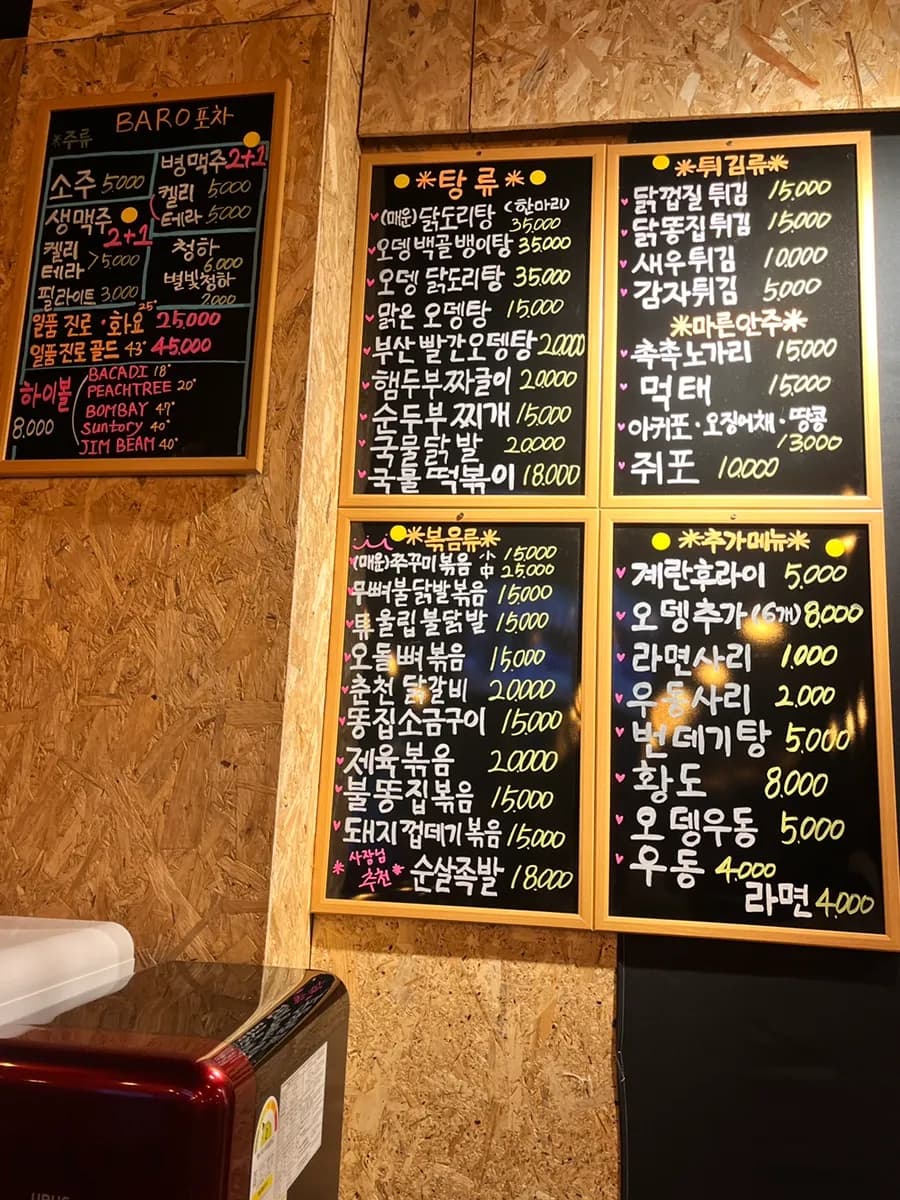 BARO 포차
*주류
소주 5000
병맥주 2+1
켈리 5,000
테라 5,000
생맥주 2+1
켈리
테라 >5,000
필라이트 3,000
청하 6,000
별빛청하 7,000
일품 진로 · 화요 25° 25,000
일품진로골드 43° 45,000
하이볼 8.000
BACADI 18°
PEACHTREE 20°
BOMBAY 47°
Suntory 40°
JIM BEAM 40°
*탕류*
(매운) 닭도리탕 (한마리) 35,000
오뎅백골뱅이탕 35,000
오뎅 닭도리탕 35,000
맑은 오뎅탕 15,000
부산빨간오뎅탕 20,000
햄두부짜글이 20,000
순두부찌개 15,000
국물닭발 20,000
국물떡볶이 18,000
*튀김류*
닭껍질튀김 15,000
닭똥집튀김 15,000
새우튀김 10,000
감자튀김 5,000
*마른안주*
촉촉노가리 15,000
먹태 15,000
아귀포 · 오징어채 · 땅콩 13,000
쥐포 10,000
*볶음류*
(매운)쭈꾸미볶음 小 15,000
中 25,000
무뼈불닭발볶음 15,000
튤울립불닭발 15,000
오돌뼈볶음 15,000
춘천닭갈비 20,000
똥집소금구이 15,000
제육볶음 20,000
불똥집볶음 15,000
돼지껍데기볶음 15,000
*사장님 추천* 순살족발 18,000
*추가메뉴*
계란후라이 5,000
오뎅추가(6개) 8,000
라면사리 1,000
우동사리 2,000
번데기탕 5,000
황도 8,000
오뎅우동 5,000
우동 4,000
라면 4,000